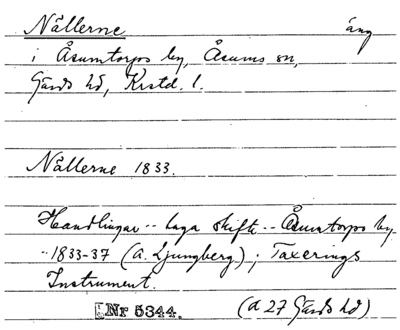 Nällerne äng
i Åsumtorps by, Åsums sn,
Gärds hd, Krstd. l.
Nällerne 1833.
Handlingar -- laga skifte -- Åsumtorps by
-- 1833-37 (A. Ljungberg); Taxerings
Instrument.
Nr 5344. (A 27 Gärds hd)